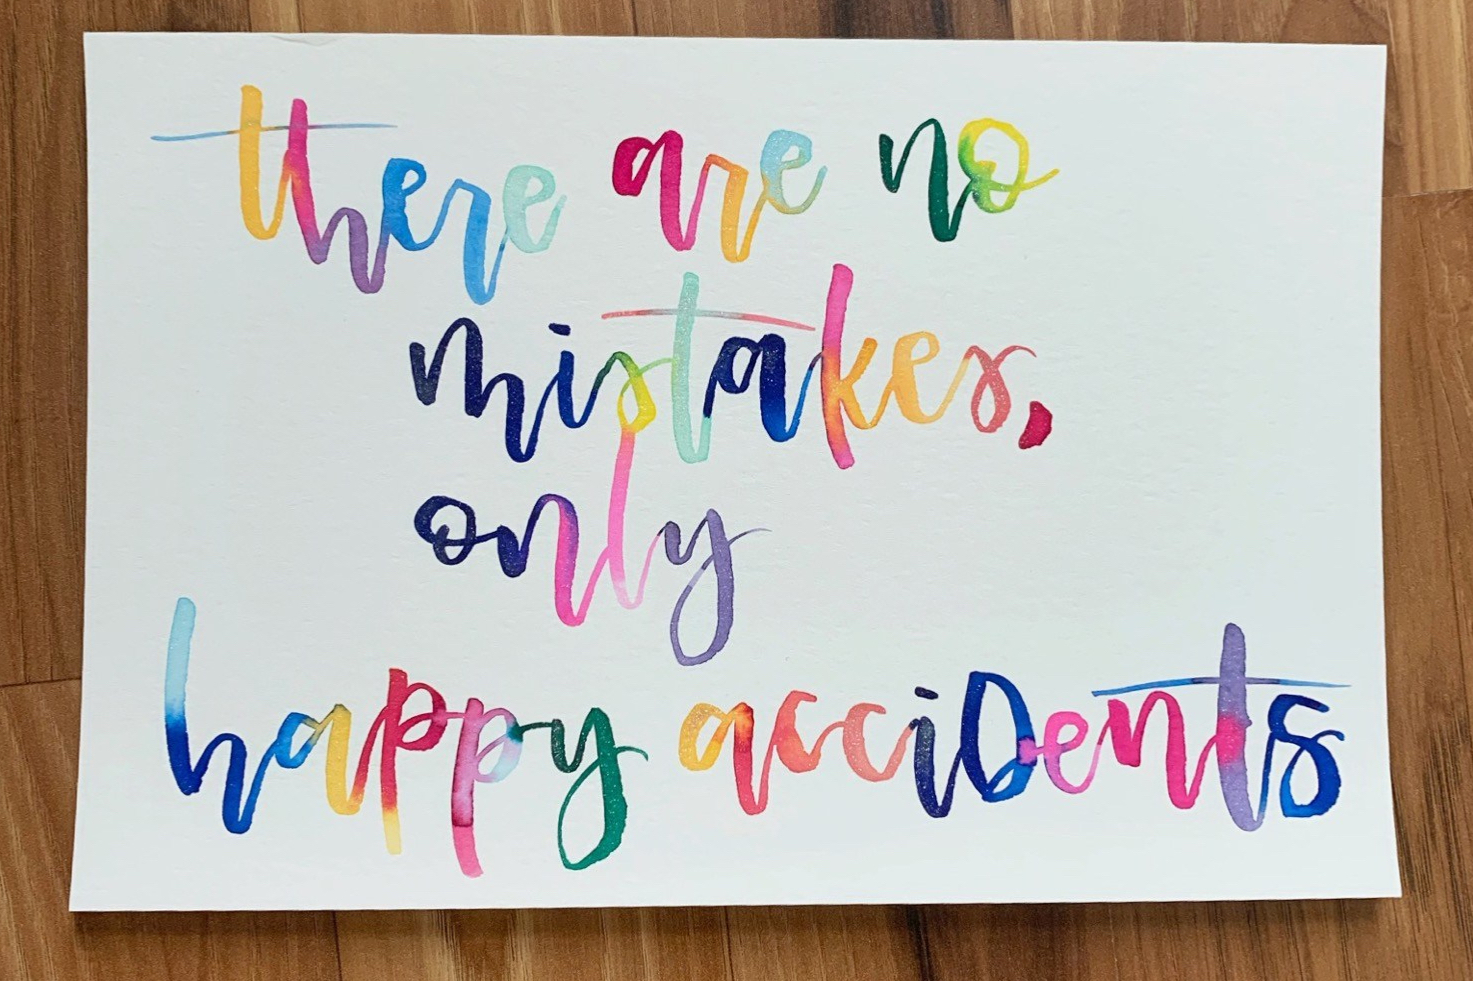 there are no
mistakes,
only
happy acciDents